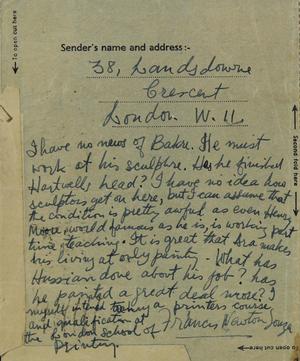 To open cut here
Sender's name and address:-
38, Landsdowne
Crescent
London W. 11
I have no news of Bakre. He must
work at his sculpture. Has he finished
Hartwell's head? I have no idea how
sculptors get on here, but I can assume that
the condition is pretty awful as even Henry
Moore world famous as he is, is working part
time teaching. It is great that Ara makes
his living at only painting. What has
Hussian done about his job? has
he painted a great deal more? I
myself intend a printers course
and qualification at
the London School of
Printing.
Francis Newton Souza
Second fold here
To open cut here